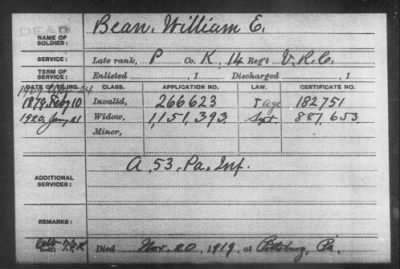 DEAD
NAME OF SOLDIER: Bean, William E.
SERVICE: Late rank, P Co. K, 14 Reg't V.R.C.
TERM OF SERVICE: Enlisted , 1 Discharged , 1
DATE OF FILING. CLASS. APPLICATION NO. LAW. CERTIFICATE NO.
1879 Feb 10 Invalid, 266623 182751
1920, Jan, 21 Widow, 1,151,393 Sept 887,653
Minor,
ADDITIONAL SERVICES: A, 53, Pa. Inf.
REMARKS:
Died Nov. 20, 1919, at Pittsburg, Pa.